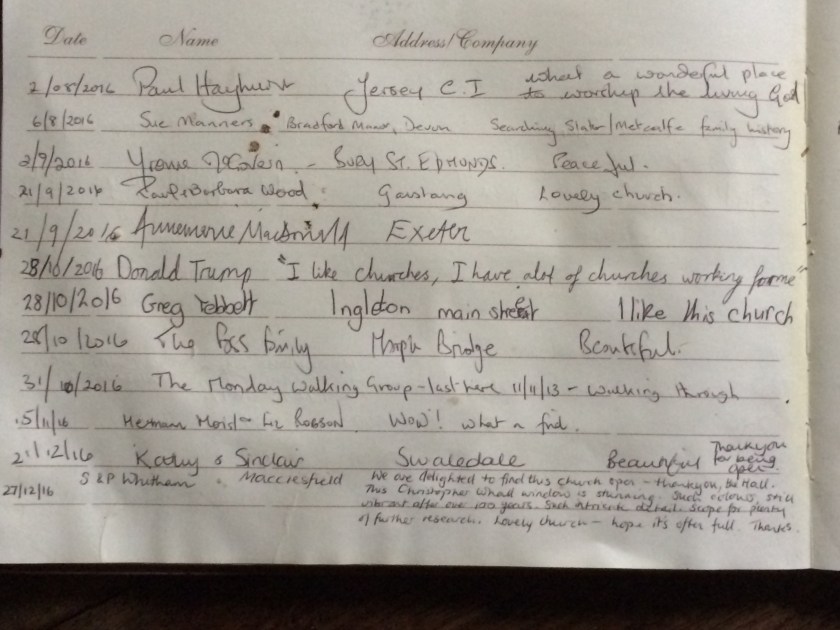 Date Name Address/Company
2/08/2016 Paul Hayhurst Jersey C.I what a wonderful place
to worship the living God
6/8/2016 Sue Manners Bradford Manor, Devon Searching Slater/Metcalfe family history
2/9/2016 Yvonne - Bury St. Edmunds. Peaceful.
21/9/2016 Paul & Barbara Wood Garstang Lovely church.
21/9/2016 Annemarie Exeter
28/10/2016 Donald Trump "I like churches, I have alot of churches working for me"
28/10/2016 Greg Ingleton main street I like this church
28/10/2016 The Foss family Bridge Beautiful.
31/10/2016 The Monday Walking Group - last here 11/11/13 - walking through
5/11/16 Herman Liz Robson. WOW! what a find.
21/12/16 Kathy & Sinclair Swaledale Beautiful Thankyou
for being
open
27/12/16 S & P Whitham Macclesfield We are delighted to find this church open - thankyou, Bet Hall.
This Christopher Whall window is stunning. Such colours, still
vibrant after over 100 years. Such intricate detail. Scope for plenty
of further research. Lovely church - hope it's often full. Thanks.